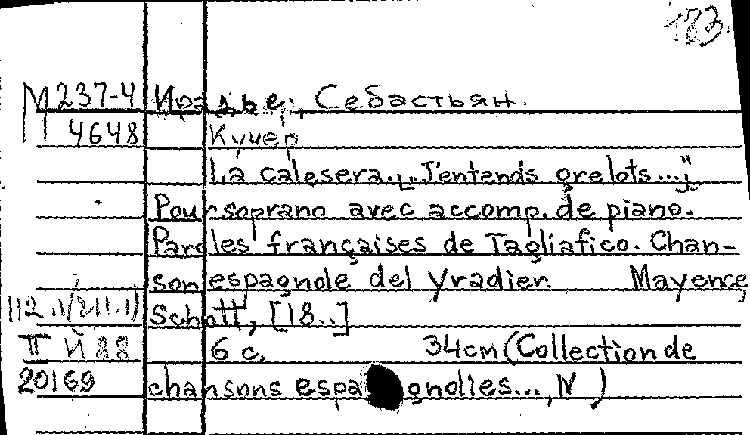 183.
М 237-4 Ирадье, Себастьян.
4648 Кучер
La calesera. ["J'entends grelots..."]
Pour soprano avec accomp. de piano.
Paroles françaises de Tagliafico. Chan-
son espagnole del Yradier. Mayence,
Schott, [18..]
II Й 88 6 с. 34см (Collection de
20169 chansons espagnolles..., N )